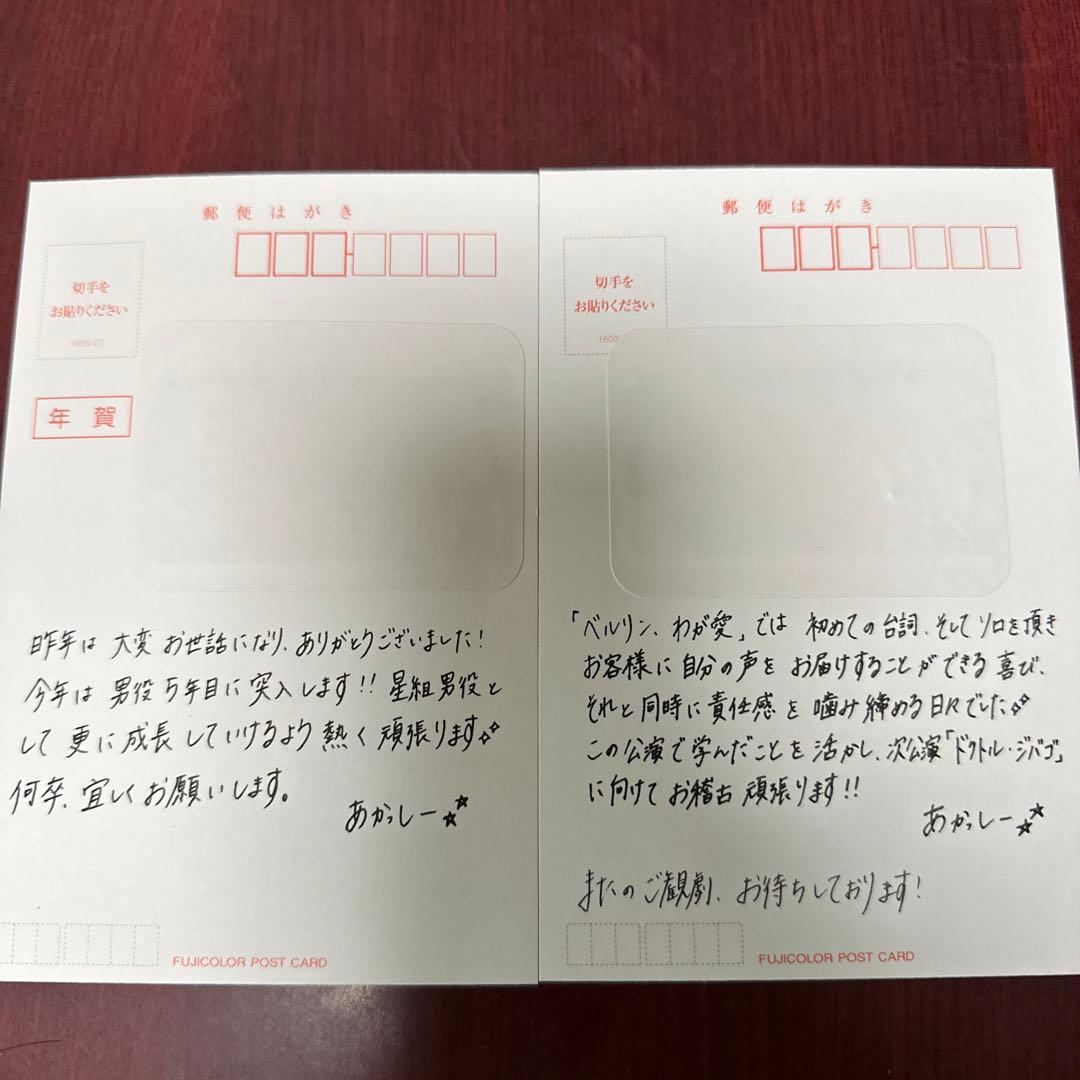 郵便はがき
切手を
お貼りください
年賀
昨年は 大変 お世話になり、ありがとうございました！
今年は 男役 5年目に 突入します!! 星組男役と
して 更に 成長 していけるよう 熱く 頑張ります
何卒、宜しく お願いします。
あかっしー
FUJICOLOR POST CARD
郵便はがき
切手を
お貼りください
「ベルリン、わが愛」では 初めての 台詞、そして ソロを頂き
お客様に 自分の 声を お届けすることができる 喜び、
それと 同時に 責任感を 噛み締める 日々でした
この 公演で 学んだことを 活かし、次公演「ドクトル・ジバゴ」
に向けて お稽古 頑張ります!!
あかっしー
またの ご観劇、お待ちしております！
FUJICOLOR POST CARD